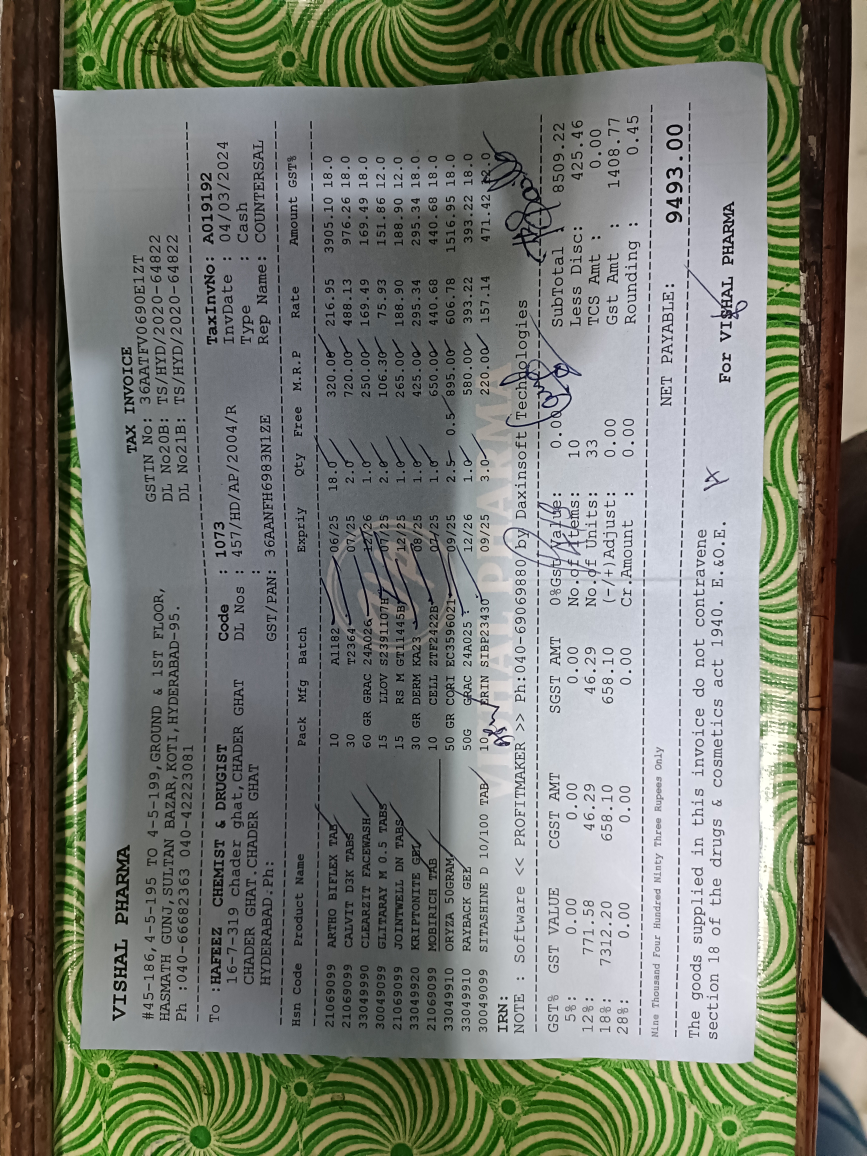 TAX INVOICE
VISHAL PHARMA
#45-186,4-5-195 TO 4-5-199,GROUND & 1ST FLOOR,
HASMATH GUNJ,SULTAN BAZAR,KOTI,HYDERABAD-95.
Ph :040-66682363 040-42223081
GSTIN No: 36AATFV0690E1ZT
DL No20B: TS/HYD/2020-64822
DL No21B: TS/HYD/2020-64822
To :HAFEEZ CHEMIST & DRUGIST
16-7-319 chader ghat,CHADER GHAT
CHADER GHAT.CHADER GHAT
HYDERABAD.Ph:
Code : 1073
DL Nos : 457/HD/AP/2004/R
:
GST/PAN: 36AANFH6983N1ZE
TaxInvNo: A019192
InvDate : 04/03/2024
Type : Cash
Rep Name: COUNTERSAL
Hsn Code Product Name Pack Mfg Batch Expriy Qty Free M.R.P Rate Amount GST%
21069099 ARTHO BIFLEX TAB 10 A1182 06/25 18.0 320.00 216.95 3905.10 18.0
21069099 CALVIT D3K TABS 30 T2364 07/25 2.0 720.00 488.13 976.26 18.0
33049990 CLEARZIT FACEWASH 60 GR GRAC 24A026 12/26 1.0 250.00 169.49 169.49 18.0
30049099 GLITARAY M 0.5 TABS 15 LLOV S2391107H 07/25 2.0 106.30 75.93 151.86 12.0
21069099 JOINTWELL DN TABS 15 RS M GT11445B 12/25 1.0 265.00 188.90 188.90 12.0
33049920 KRIPTONITE GEL 30 GR DERM KA23 08/25 1.0 425.00 295.34 295.34 18.0
21069099 MOBIRICH TAB 10 CELL ZTF2422B 1.0 650.00 440.68 440.68 18.0
33049910 ORYZA 50GRAM 50 GR CORI EC3596021 09/25 2.5 0.5 895.00 606.78 1516.95 18.0
33049910 RAYBACK GEL 50G GRAC 24A025 12/26 1.0 580.00 393.22 393.22 18.0
30049099 SITASHINE D 10/100 TAB 10 ERIN SIBP23430 09/25 3.0 220.00 157.14 471.42 12.0
IRN:
NOTE : Software << PROFITMAKER >> Ph:040-69069880 by Daxinsoft Technologies
GST% GST VALUE CGST AMT SGST AMT 0%Gst Value: 0.00 SubTotal : 8509.22
5%: 0.00 0.00 0.00 No.of Items: 10 Less Disc: 425.46
12%: 771.58 46.29 46.29 No.of Units: 33 TCS Amt : 0.00
18%: 7312.20 658.10 658.10 (-/+)Adjust: 0.00 Gst Amt : 1408.77
28%: 0.00 0.00 0.00 Cr.Amount : 0.00 Rounding : 0.45
Nine Thousand Four Hundred Ninty Three Rupees Only
NET PAYABLE: 9493.00
The goods supplied in this invoice do not contravene
section 18 of the drugs & cosmetics act 1940. E.&O.E.
For VISHAL PHARMA
VISHAL PHARMA